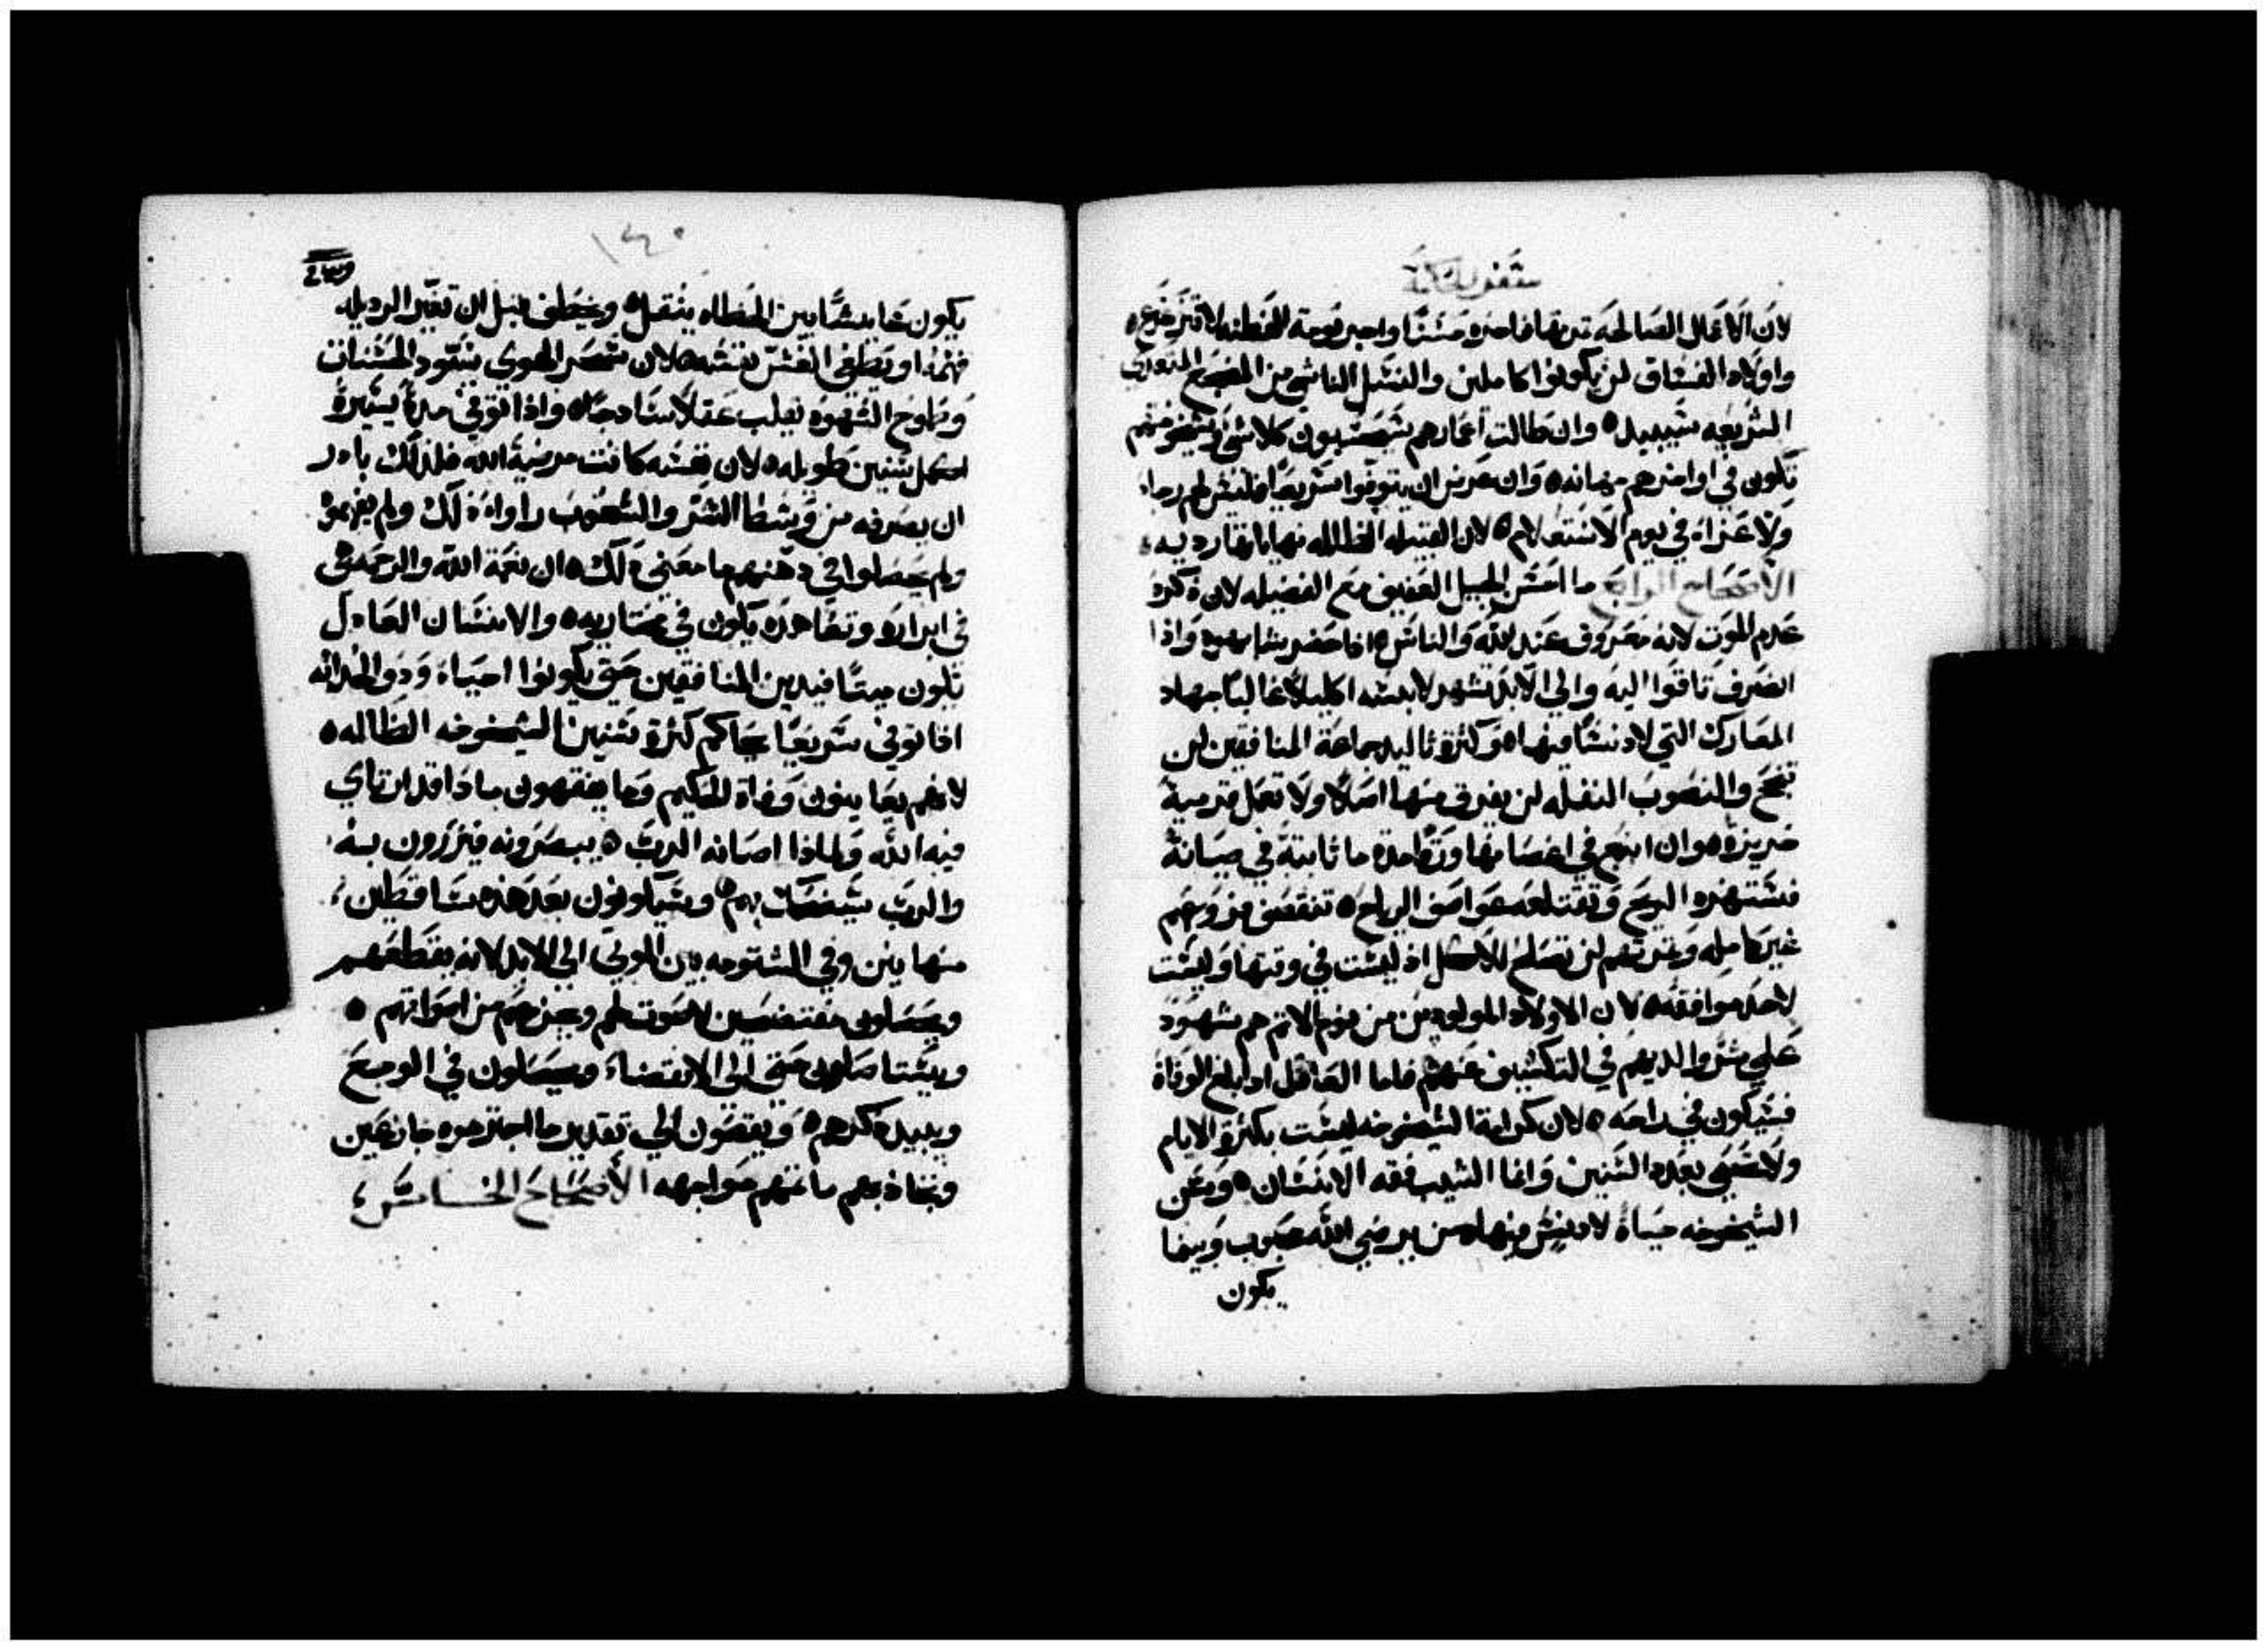 سفر الحكمة
لان الاعمال الصالحه ثمرتها فاخره حسنا واجر نومة الفطنه لا تتزعزع
واولاد الفساق لن يكونوا كاملين والنسل الناشي من المضجع المتعدي
الشريعه سيبيد وان طالت اعمارهم سيحسبون كلا شي وشيخوختهم
تكون في اواخرهم مهانه وان عرض ان يتوفوا سريعا فليس لهم رجاء
ولا عزاء في يوم الاستعلام لان القبيله الظالمه نهاياتها رديه
الاصحاح الرابع ما احسن الجيل العفيف مع الفضيله لان ذكره
عدم الموت لانه معروف عند الله والناس اذا حضر يشابهوه واذا
انصرف تاقوا اليه والي الابد تشهد لابسه اكليلا غالبا جهاد
المعارك التي لا دنسا فيها وكثرة تاليد جماعة المنافقين لن
تنجح والنصوب النغله لن يغرق منها اصلا ولا تعمل قرمية
حريزه وان اينع في اغصانها وقتا مده ما ثابتة في صيانة
فستهزه الريح وتقتلعه عواصف الرياح تنقصف فروعهم
غير كامله وثمرتهم لن تصلح للاكل اذ ليست في وقتها وليست
لاحد موافقه لان الاولاد المولودين من نوم الاثم هم شهود
علي شر والديهم في التكشيف عنهم فاما العادل اذا بلغ الوفاة
فسيكون في راحه لان كرامة الشيخوخه ليست بكثرة الايام
ولا تحسب بعدد السنين وانما الشيب فقه الانسان وعن
الشيخوخه حياة لا دنس فيها من يرضي الله محبوب وبينما
يكون
١٤٠
يكون عايشا بين الخطاه ينتقل وخطف قبل ان تغير الرديله
فهمه او يطغي الغش نفسه لان سحر الهوي يسود الحسنات
وطموح الشهوه يقلب عقلا ساذجا واذا توفي مدة يسيرة
اكمل سنين طويله لان نفسه كانت مرضية الله فلذلك بادر
ان يصرفه من وسط الشر والشعوب راوا ذلك ولم يفهموا
ولم يجعلوا في ذهنهم ما معني ذلك ان نعمة الله والرحمه هي
في ابراره وتعاهده يكون في مختاريه والانسان العادل
تكون ميتا فيدين المنافقين حتي يكونوا احياء وذو الحداثه
اذا توفي سريعا يحاكم كثرة سنين الشيخوخه الظالمه
لانهم يعاينون وفاة الحكيم وما يفقهون ماذا قد ارتاي
فيه الله ولماذا اصانه الرب يبصرونه فيزرون به
والرب يضحك بهم وسيكونون بعد هذه ساقطين
مهانين وفي الشتومه بين الموتي الي الابد لانه يقطعهم
ويجعلون منتفخين لا صوت لهم ويزحزحهم من اصواتهم
ويستاصلون حتي الي الانقضاء ويحصلون في الوجع
ويبيد ذكرهم ويقصون الي تقدير ما اجترموه جازعين
وتخاذبهم ماثمهم مواجهه الاصحاح الخامس